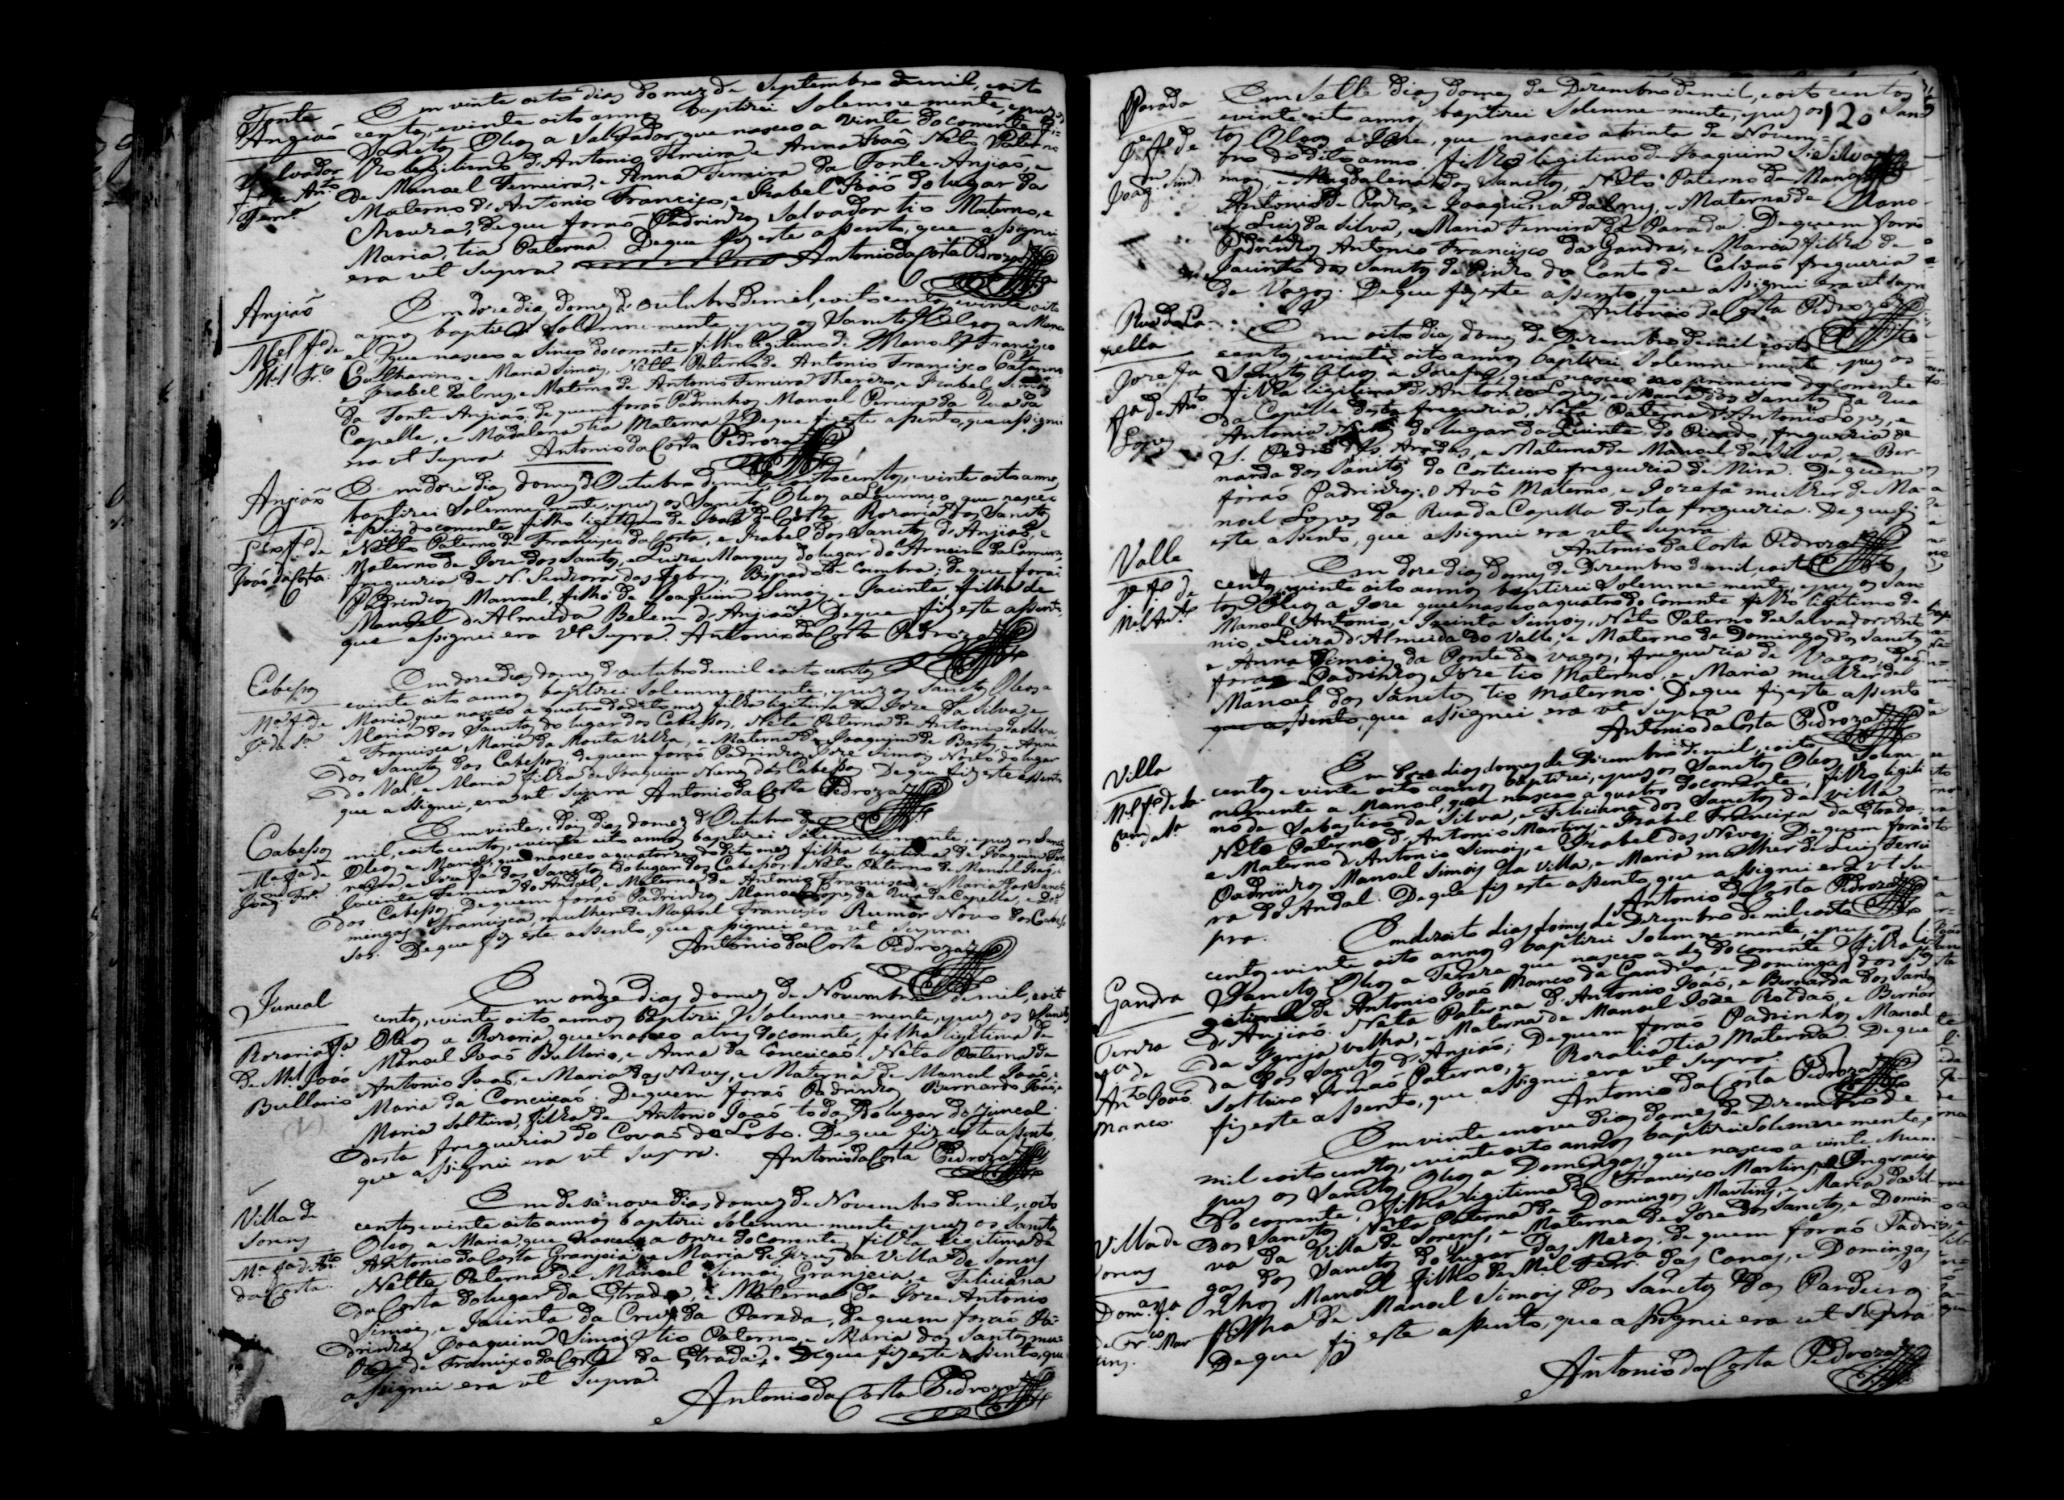 Fonte
Anjiaõ
Salvador
f.º de An.to
Ferr.ª
Em vinte oito dias do mez de Septembro de mil, e oito
centos, e vinte oito annos baptizei Solemne mente, e puz os
Sanctos Oleos a Salvador que nasceo a vinte do corrente Fi-
lho legitimo d'Antonio Ferreira, e Anna Joaõ, Neto Paterno
de Manoel Ferreira, e Anna Ferreira da Fonte-Anjiaõ, e
Materno d'Antonio Francisco, e Izabel Joaõ do lugar da
de que foraõ Padrinhos Salvador tio Materno, e
Maria, tia Paterna. De que fiz este assento, que assignei
era ut Supra Antonio da Costa Pedroza
Anjiaõ
M.el f.º de
M.el Fr.co
Em doze dias do mez d'Outubro de mil, e oito centos, e vinte oito
annos baptizei Solemne-mente, e puz os Sanctos Oleos a Mano-
el, que nasceo a sinco do corrente filho legitimo de Manoel Francisco
Catharino e Maria Simoẽs, Netto Paterno de Antonio Francisco Catarino
e Izabel da Cruz, e Materno de Antonio Ferreira Thereza, e Izabel Simoẽs
da Fonte-Anjiaõ, de quem foraõ Padrinhos Manoel Pereira da Rua da
Capella, e Madalena tia Materna. De que fiz este assento, que assignei
era ut Supra Antonio da Costa Pedroza
Anjiaõ
Lço f.º de
Joaõ da Costa.
Em doze dias do mez d'Outubro de mil, e oito centos, e vinte oito annos
baptizei Solemne mente, e puz os Sanctos Oleos a Lourenço que nasceo
a seis do corrente filho legitimo de Joaõ da Costa, Rozaria dos Sanctos
e Netto Paterno de Francisco da Costa, e Izabel dos Sanctos d'Anjiaõ, e
Materno de Joze dos Santos, e Luiza Marques do lugar da Arneira da
freguezia de N. Senhora das Febres, Bispado de Coimbra; de que foraõ
Padrinhos Manoel, filho de Joaquim Simoẽs, e Jacinta, filha de
Manoel d'Almeida Belem d'Anjiaõ. De que fiz este assento,
que assignei era ut Supra. Antonio da Costa Pedroza
Cabessos
M.ª f.ª de
J.e da S.ª
Em doze dias do mez d'Outubro de mil e oito centos
e vinte oito annos baptizei Solemne mente, e puz os Sanctos Oleos a
Maria que nasceo a quatro do dito mez filha legitima de Joze da Silva, e
Maria dos Santos do lugar dos Cabessos, Neta Paterna de Antonio da Silva
e Francisca Maria da Mouta Velha, e Materna de Joaquim de Bastos, e Anna
dos Sanctos dos Cabessos; de quem foraõ Padrinhos Joze Simoẽs Novo do lugar
do Vall, e Maria filha de Joaquim Nunes dos Cabessos. De que fiz este assento
que assignei, era ut Supra Antonio da Costa Pedroza
Cabessos
M.ª f.ª de
Joaq. Fr.
Em vinte, e dois dias do mez d'Outubro de
mil, e oito centos, e vinte oito annos baptizei Solemne mente, e puz os Sanctos
Oleos a Maria, que nasceo a quatorze do dito mez filha legitima de Joaquim
e Jozefa dos Sanctos do lugar dos Cabessos, e Neta Paterna de Manoel Joaq.,
Jacinta Ferreira do Andal, e Materna de Antonio Francisco, e Maria dos Sanctos
dos Cabessos, de quem foraõ Padrinhos Manoel Lopes da Rua da Capella, e Do-
mingas Francisca, mulher de Manoel Francisco Rumor Novo dos Cabes-
sos. De que fiz este assento, que assignei era ut Supra.
Antonio da Costa Pedroza
Juncal
Rozaria f.ª
de M.el Joaõ
Bullario
(V)
Em onze dias do mez de Novembro de mil, e oito
centos, e vinte oito annos baptizei Solemne-mente, e puz os Sanctos
Oleos a Rozaria, que nasceo a tres do corrente, filha legitima de
Manoel Joaõ Bullario, e Anna da Conceicaõ, Neta Paterna de
Antonio Joaõ, e Maria das Neves, e Materna de Manoel Joaõ, e
Maria da Conceicaõ. De quem foraõ Padrinhos Bernardo Joaõ, e
Maria Solteira, filha de Antonio Joaõ todos do lugar do Juncal
desta freguezia do Covaõ do Lobo. De que fiz este assento,
que assignei era ut Supra. Antonio da Costa Pedroza
Villa de
Sorens
M.ª f.ª d'An.to
da Costa.
Em desanove dias do mez de Novembro de mil, e oito
centos, e vinte oito annos baptizei Solemne-mente, e puz os Sanctos
Oleos, a Maria que nasceo a onze do corrente, filha legitima de
Antonio da Costa Granjeia, e Maria de Jezus da Villa de Sorens
Netta Paterna de Manoel Simoẽs Granjeia, e Feliciana
da Costa do lugar da Estrada, e Materna de Joze Antonio
Simoẽs, e Jacinta da Cruz da Parada, de quem foraõ Pa-
drinhos Joaquim Simoẽs tio Paterno, e Maria dos Santos mu-
lher de Francisco da Costa da Estrada. De que fiz este assento, que
assignei era ut Supra.
Antonio da Costa Pedroza
120
Parada
Joze f.º de
Joaq. Sim.
Em Sette dias do mez de Dezembro de mil, e oito centos
e vinte oito annos baptizei Solemne-mente, e puz os Sanc-
tos Oleos a Joze, que nasceo a trinta de Novem-
bro do dito anno filho legitimo de Joaquim Si-
moẽs, e Magdalena dos Sanctos, Neto Paterno de Manoel
Antonio de Pinho, e Joaquina da Cruz, e Materna de Mano-
el Luiz da Silva, e Maria Ferreira da Parada. De quem foraõ
Padrinhos Antonio Francisco da Gandra, e Maria filha de
Jacinto dos Sanctos de Pinho do Canto de Calvaõ freguezia
de Vagos. De que fiz este assento, que assignei era ut Supra
Antonio da Costa Pedroza
Rua da Ca-
pella
Jozefa
f.ª de An.to
Lopes
Em oito dias do mez de Dezembro de mil e oito
centos, e vinte oito annos baptizei Solemne-mente, e puz os
Sanctos Oleos a Jozefa, que nasceo ao primeiro do corrente
filha legitima d'Antonio Lopes, e Maria dos Sanctos da Rua
da Capella desta freguezia, Neta Paterna d'Antonio Lopes, e
Antonia Nunes do lugar da Quinta do Picado, freguezia de
S. Pedro d'Aradas, e Materna de Manoel da Silva, e Ber-
narda dos Sanctos do Corticeiro freguezia de Mira. De quem
foraõ Padrinhos, o Avô Materno, e Jozefa mulher de Ma-
noel Lopes da Rua da Capella desta freguezia. De que fiz
este assento, que assignei era ut Supra
Antonio da Costa Pedroza
Valle
Joze f.º de
M.el An.to
Em doze dias do mez de Dezembro de mil, e oito
centos, e vinte oito annos baptizei Solemne mente, e puz os San-
tos Oleos a Joze que nasceo a quatro do corrente filho legitimo de
Manoel Antonio, e Jacinta Simoẽs, Neto Paterno de Salvador Anto-
nio, e Luiza d'Almeida do Valle, e Materno de Domingos dos Sanctos
e Anna Simoẽs da Ponte de Vagos, freguezia de Vagos, de q.
foraõ Padrinhos Joze tio Materno, e Maria mulher de
Manoel dos Sanctos tio Materno. De que fiz este assento
que assignei era ut Supra
Antonio da Costa Pedroza
Villa
M.el f.º de Se-
bas. da S.ª
Em treze dias do mez de Dezembro de mil, e oito
centos e vinte oito annos baptizei, e puz os Sanctos Oleos Solem-
nemente a Manoel, que nasceo a quatro do corrente, filho legiti-
mo de Sabastiaõ da Silva, e Feliciana dos Sanctos da Villa
Neto Paterno d'Antonio Martins, e Izabel Francisca da Estrada
e Materno d'Antonio Simoẽs, e Izabel das Neves; De quem foraõ
Padrinhos Manoel Simoẽs da Villa, e Maria mulher de Luiz Ferrei-
ra do Andal. De que fiz este assento que assignei era ut Su-
pra. Antonio da Costa Pedroza
Gandra
Tereza
f.ª de
An.to Joaõ
Manco.
Em dezoito dias do mez de Dezembro de mil e oito
centos, e vinte oito annos baptizei Solemne mente, e puz os
Sanctos Oleos a Tereza que nasceo a dez do corrente, filha le-
gitima de Antonio Joaõ Manco da Gandra, e Domingas dos Sanctos
d'Anjiaõ. Neta Paterna d'Antonio Joaõ, e Bernarda dos Sanctos
da Igreja velha, e Materna de Manoel Joze Roldaõ, e Bernar-
da dos Sanctos d'Anjiaõ; De quem foraõ Padrinhos Manoel
Solteiro Irmaõ Paterno, e Rozalia tia Materna. De que
fiz este assento, que assignei era ut Supra.
Antonio da Costa Pedroza
Villa de
Sorens
Dom.as f.ª
de Fr.co Mar-
tins.
Em vinte e nove dias do mez de Dezembro de
mil e oito centos, e vinte oito annos baptizei Solemne mente, e
puz os Sanctos Oleos a Domingas, que nasceo a vinte e hum
do corrente, filha legitima de Francisco Martins, e Engracia
dos Sanctos, Neta Paterna de Domingos Martins, e Maria da Sil-
va da Villa de Sorens, e Materna de Joze dos Sanctos, e Domin-
gas dos Sanctos do lugar das Mezas, de quem foraõ Padri-
nhos Manoel filho de M.el Ferr.ª das Canas, e Domingas
filha de Manoel Simoẽs dos Sanctos dos Pardieiros
De que fiz este assento, que assignei era ut Supra
Antonio da Costa Pedroza